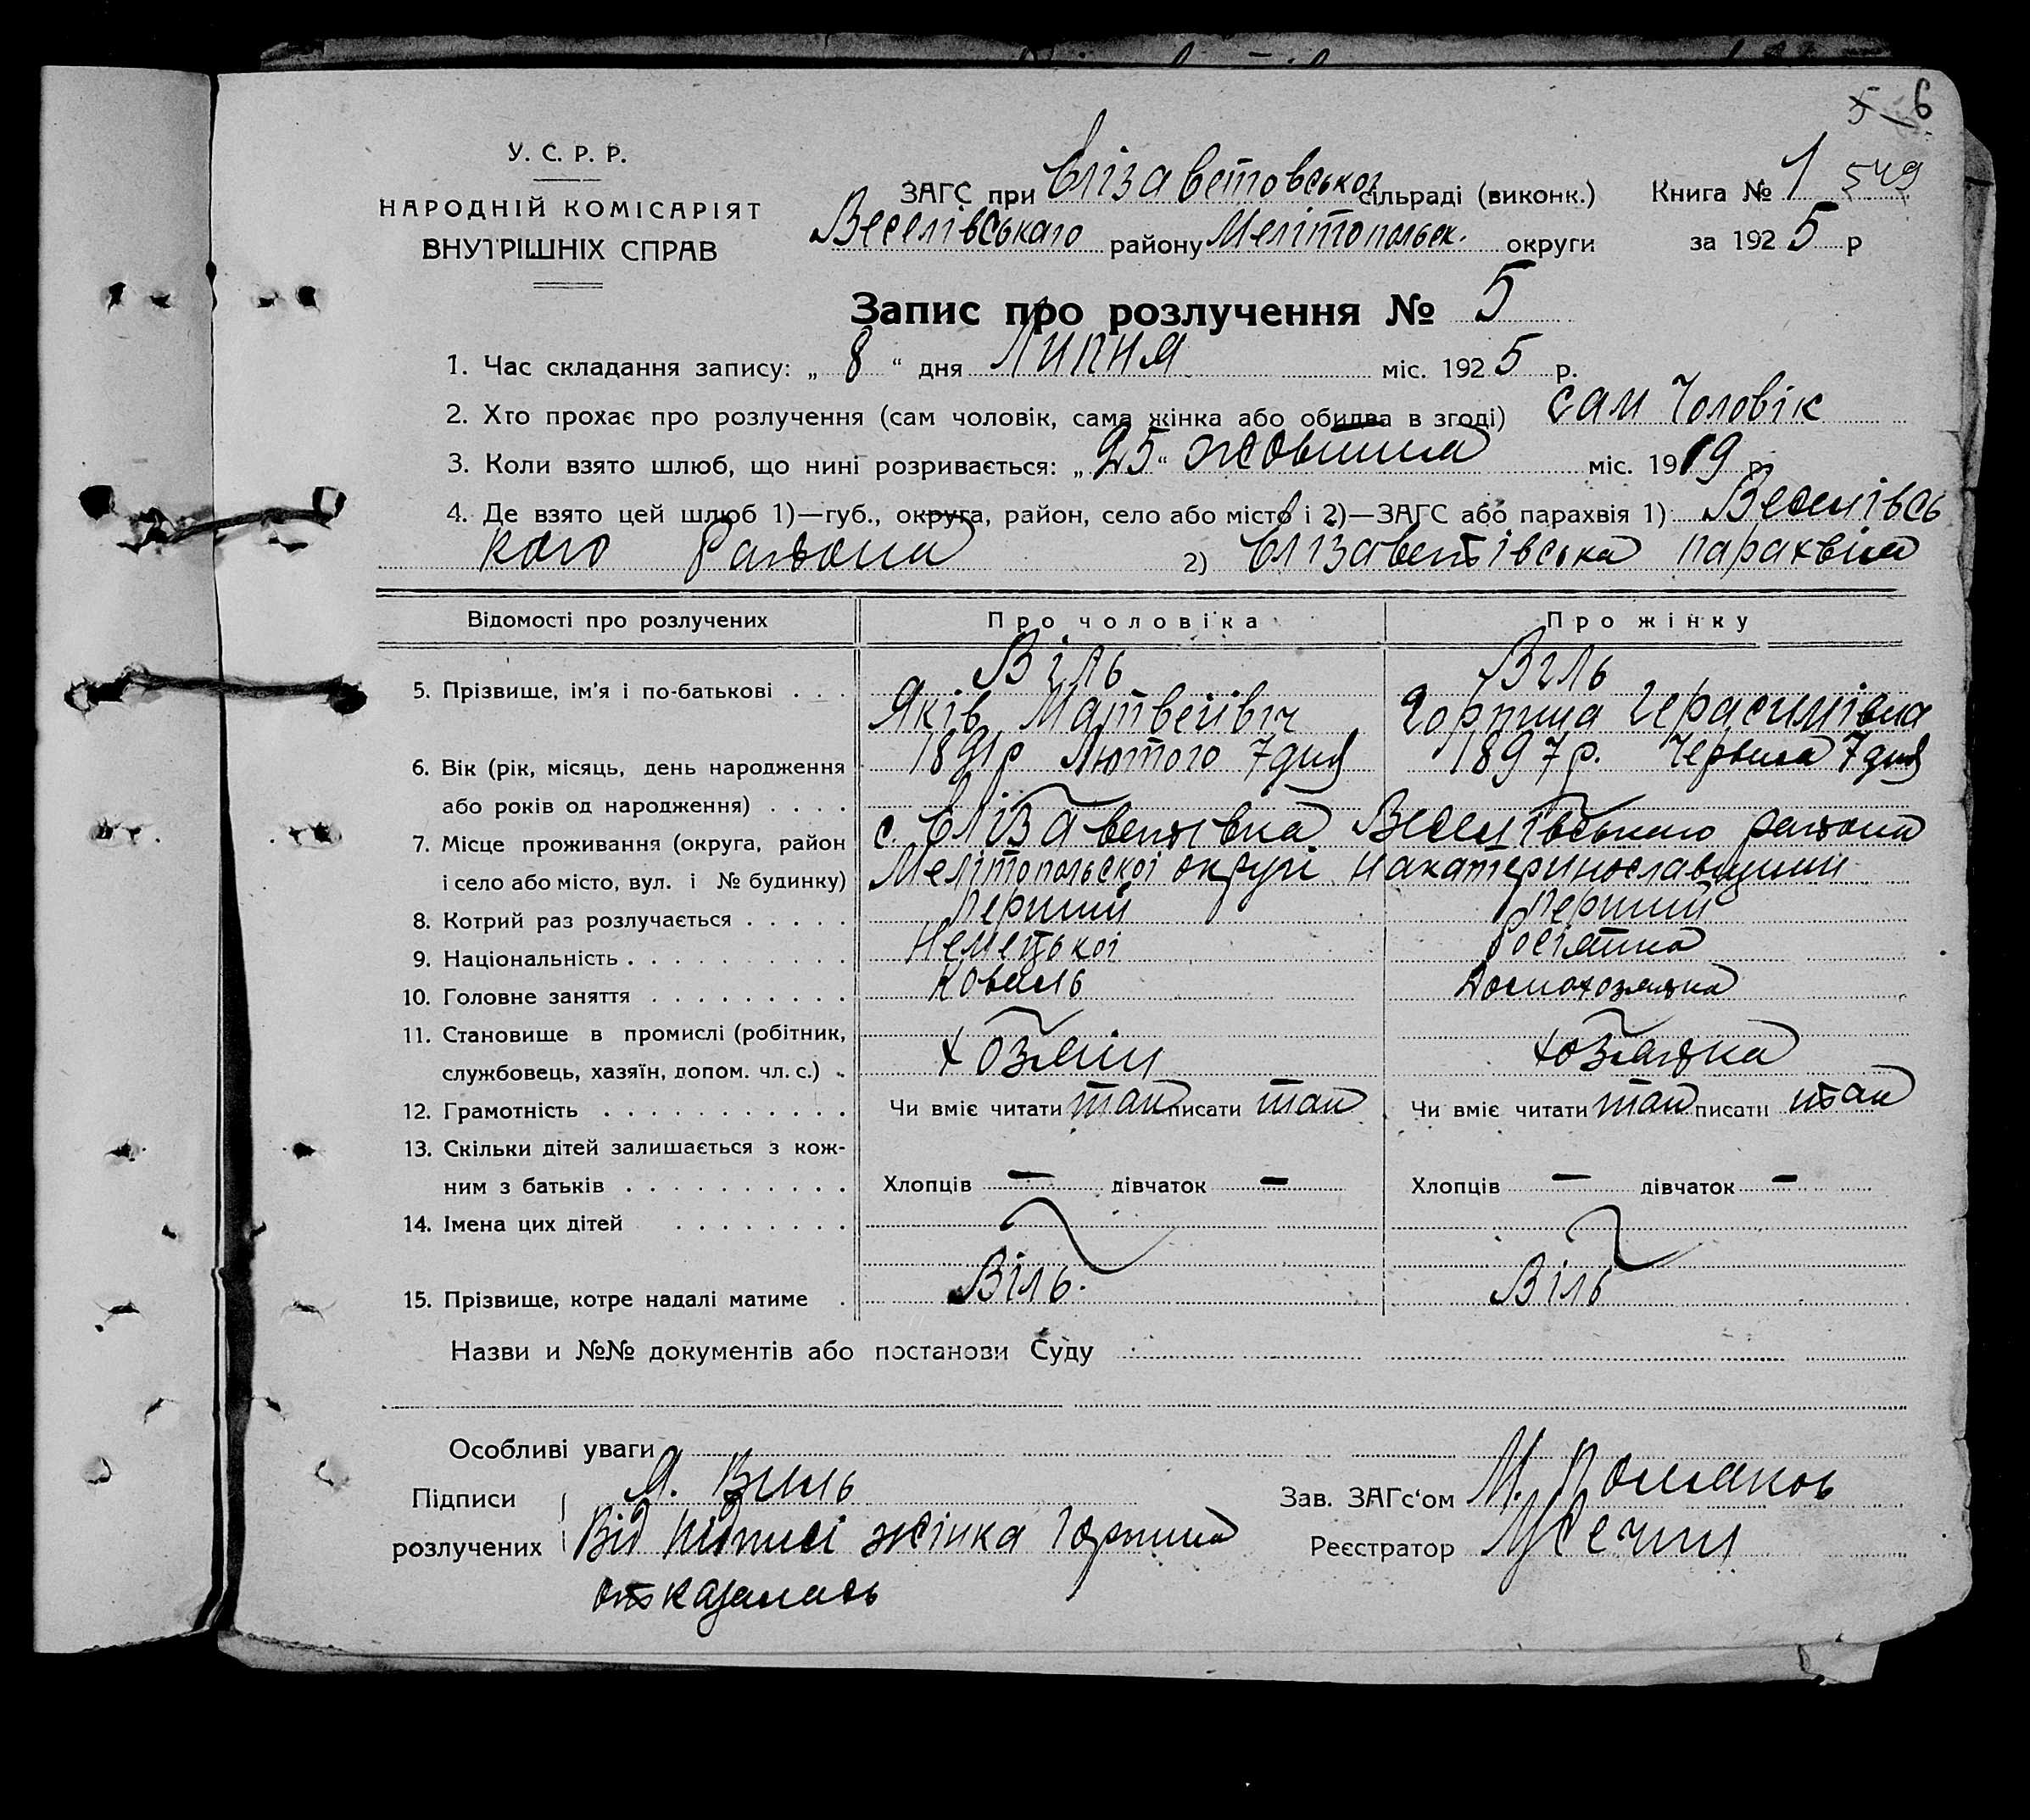 5 6
У. С. Р. Р.
НАРОДНІЙ КОМІСАРІЯТ
ВНУТРІШНІХ СПРАВ
ЗАГС при Єлізаветовськоі сільраді (виконк.) Книга № 1 549
Веселівськаго району Мелітопольск. округи за 1925 р
Запис про розлучення № 5
1. Час складання запису: „ 8 “ дня Липня міс. 1925 р.
2. Хто прохає про розлучення (сам чоловік, сама жінка або обидва в згоді) сам чоловік
3. Коли взято шлюб, що нині розривається: „ 25 “ жовтня міс. 1919 р.
4. Де взято цей шлюб 1)—губ., округа, район, село або місто і 2)—ЗАГС або парахвія 1) Веселівсь
кого района 2) Єлізаветівська парахвія
Відомості про розлучених Про чоловіка Про жінку
5. Прізвище, ім'я і по-батькові . . . Віль Віль
Яків Матвеівіч Горпина Герасимівна
6. Вік (рік, місяць, день народження 1891р Лютого 7дня 1897р. Червня 7дня
або років од народження) . . . .
7. Місце проживання (округа, район с. Єлізаветівка Веселівського района
і село або місто, вул. і № будинку) Мелітопольскоі округі на катеринославщини
8. Котрий раз розлучається . . . . . Перший Перший
9. Національність . . . . . . . . . . Немецькоі Росіянка
10. Головне заняття . . . . . . . . . Коваль Домохозяйка
11. Становище в промислі (робітник,
службовець, хазяїн, допом. чл. с.) . хозяин хозяйка
12. Грамотність . . . . . . . . . . . Чи вміє читати так писати так Чи вміє читати так писати так
13. Скільки дітей залишається з кож-
ним з батьків . . . . . . . . . . Хлопців — дівчаток — Хлопців — дівчаток —
14. Імена цих дітей . . . . . . . .
15. Прізвище, котре надалі матиме . Віль. Віль
Назви и №№ документів або постанови Суду
Особливі уваги
Підписи Я. Виль Зав. ЗАГс‘ом М.
розлучених Від підписі жінка Горпина Реєстратор
отказалась